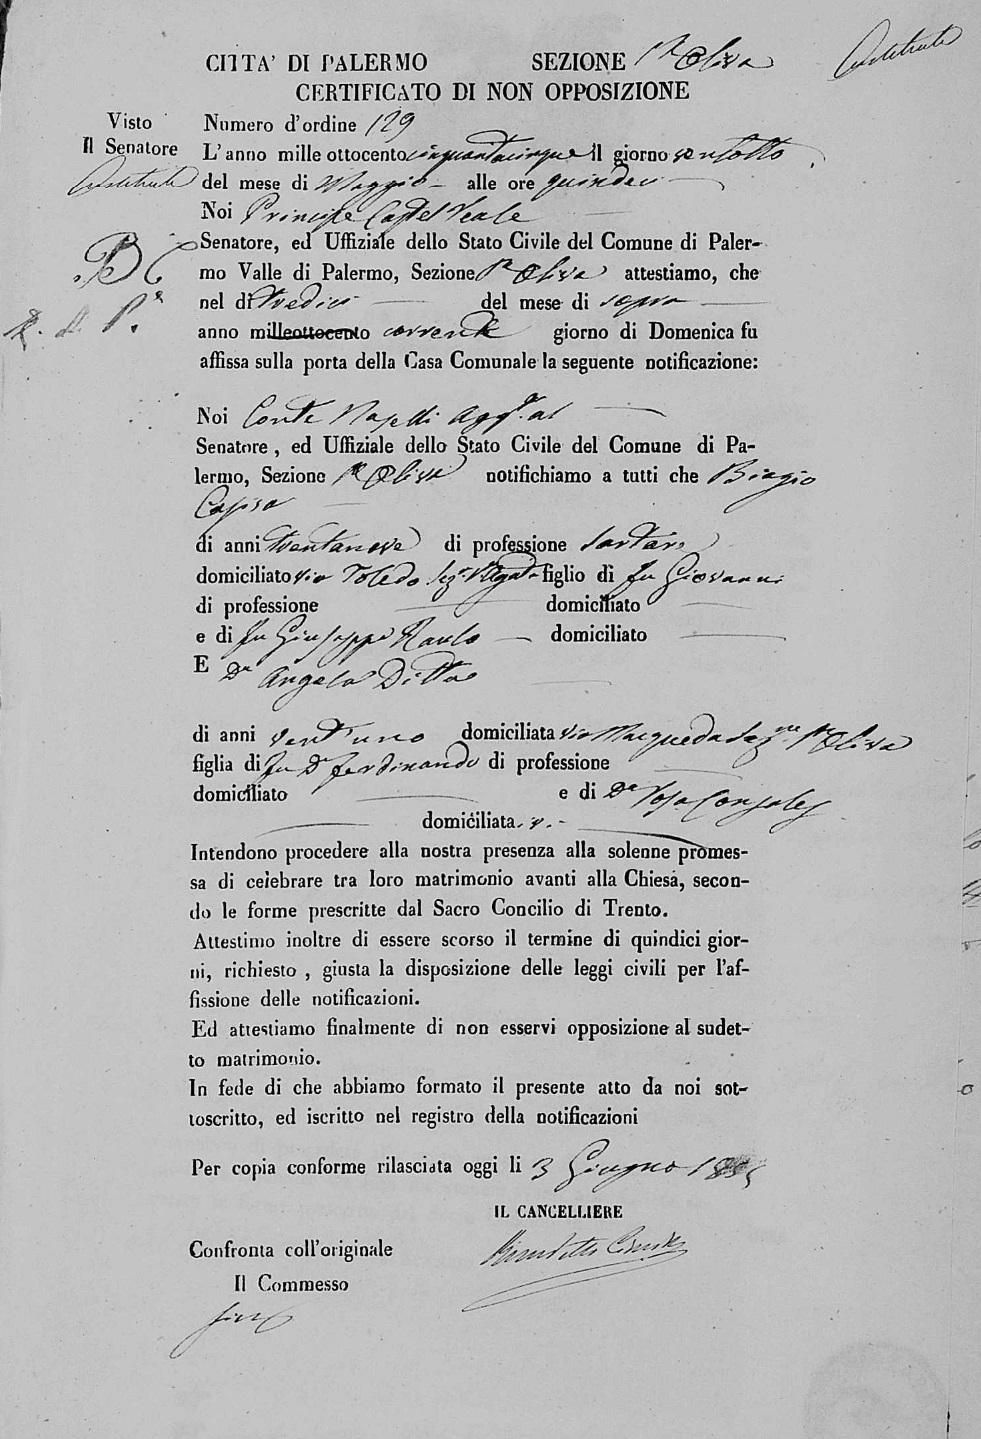 CITTA' DI PALERMO SEZIONE Pr Oliva
CERTIFICATO DI NON OPPOSIZIONE
Visto
Il Senatore
Numero d'ordine 129
L'anno mille ottocento cinquantacinque il giorno ventotto
del mese di Maggio alle ore quindeci
Noi Principe Castel reale
Senatore, ed Uffiziale dello Stato Civile del Comune di Paler-
mo Valle di Palermo, Sezione Pr Oliva attestiamo, che
nel dì tredici del mese di sopra
anno milleottocento corrente giorno di Domenica fu
affissa sulla porta della Casa Comunale la seguente notificazione:
Noi Conte Naselli Aggto al
Senatore, ed Uffiziale dello Stato Civile del Comune di Pa-
lermo, Sezione Pr Oliva notifichiamo a tutti che Biagio
di anni trentanove di professione Sartore
domiciliato via Toledo Sezne S. Agata figlio di fu Giovanni
di professione domiciliato
e di fu Giuseppa domiciliato
E Da Angela
di anni vent'uno domiciliata via Maqueda Sezne Pr Oliva
figlia di fu Dn Ferdinando di professione
domiciliato e di Da Rosa Consales
domiciliata. v.
Intendono procedere alla nostra presenza alla solenne promes-
sa di celebrare tra loro matrimonio avanti alla Chiesa, secon-
do le forme prescritte dal Sacro Concilio di Trento.
Attestimo inoltre di essere scorso il termine di quindici gior-
ni, richiesto, giusta la disposizione delle leggi civili per l'af-
fissione delle notificazioni.
Ed attestiamo finalmente di non esservi opposizione al sudet-
to matrimonio.
In fede di che abbiamo formato il presente atto da noi sot-
toscritto, ed iscritto nel registro della notificazioni
Per copia conforme rilasciata oggi li 3 Giugno 1855
IL CANCELLIERE
Confronta coll'originale
Il Commesso